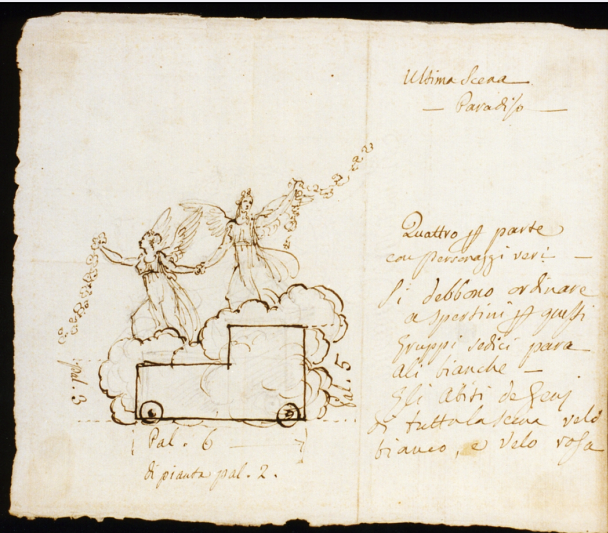 Ultima Scena
— Paradiso —
Quattro p parte
con personaggi veri —
Si debbono ordinare
a Spertini p questi
Gruppi sedici para
ali bianche —
Gli Abiti de Genj
di tutta la scena velo
bianco, e velo rosa
Pal. 3
Pal. 5
Pal. 6
di pianta pal. 2.